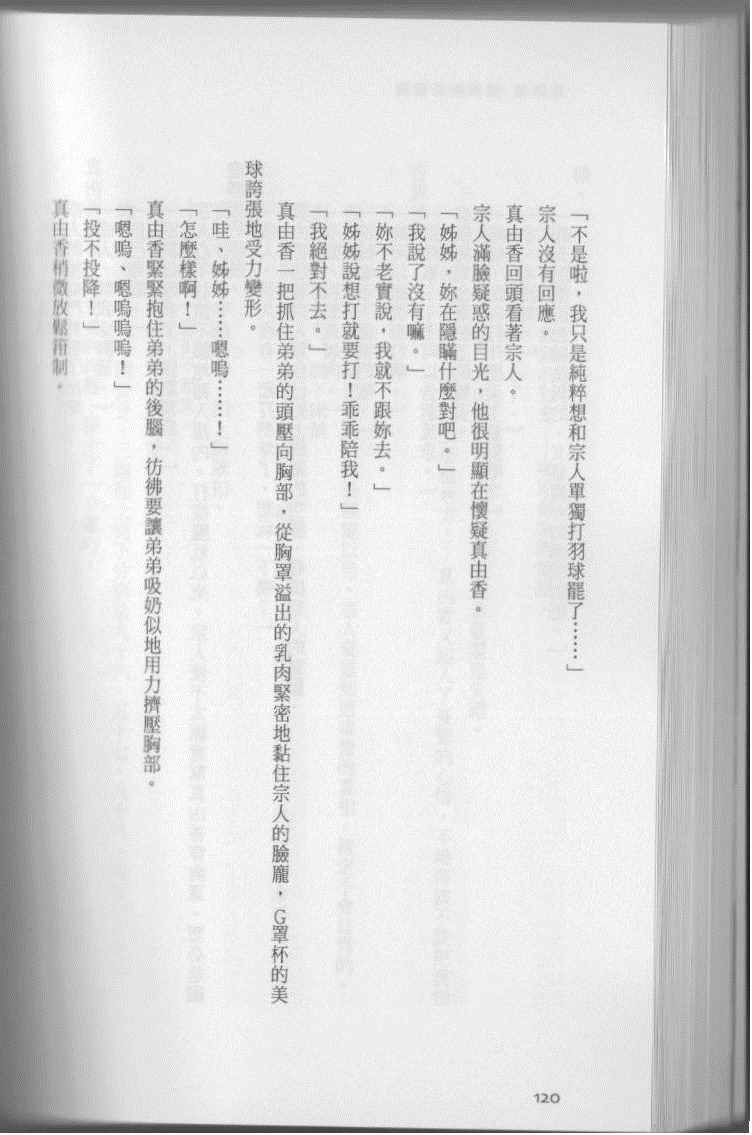 「不是啦，我只是純粹想和宗人單獨打羽球罷了……」
宗人沒有回應。
真由香回頭看著宗人。
宗人滿臉疑惑的目光，他很明顯在懷疑真由香。
「姊姊，妳在隱瞞什麼對吧。」
「我說了沒有嘛。」
「妳不老實說，我就不跟妳去。」
「姊姊說想打就要打！乖乖陪我！」
「我絕對不去。」
真由香一把抓住弟弟的頭壓向胸部，從胸罩溢出的乳肉緊密地黏住宗人的臉龐，G罩杯的美
球誇張地受力變形。
「哇、姊姊……嗯嗚……！」
「怎麼樣啊！」
真由香緊緊抱住弟弟的後腦，彷彿要讓弟弟吸奶似地用力擠壓胸部。
「嗯嗚、嗯嗚嗚嗚！」
「投不投降！」
真由香稍微放鬆箝制。
120